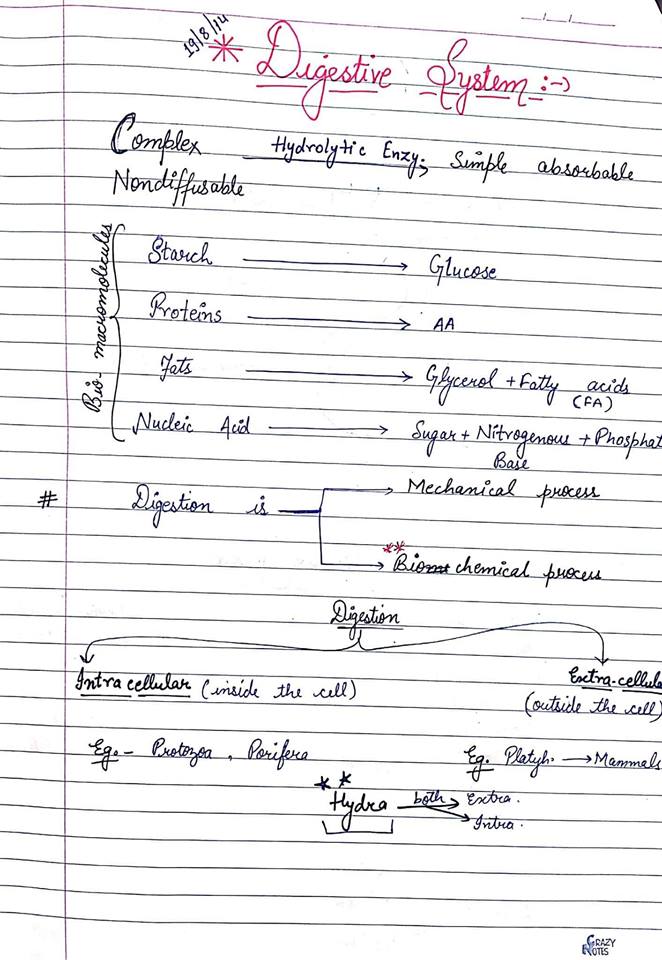 19/8/14
* Digestive System :-)
Complex Hydrolytic Enzy. Simple absorbable
Nondiffusable
Bio-macromolecules
Starch → Glucose
Proteins → AA
Fats → Glycerol + Fatty acids
(FA)
Nucleic Acid → Sugar + Nitrogenous + Phosphat
Base
# Digestion is → Mechanical process
** → Biochemical process
Digestion
Intracellular (inside the cell) Extra-cellula
(outside the cell)
Eg.- Protozoa, Porifera Eg. Platyh. → Mammals
** Hydra both → Extra.
→ Intra.
CRAZY
NOTES